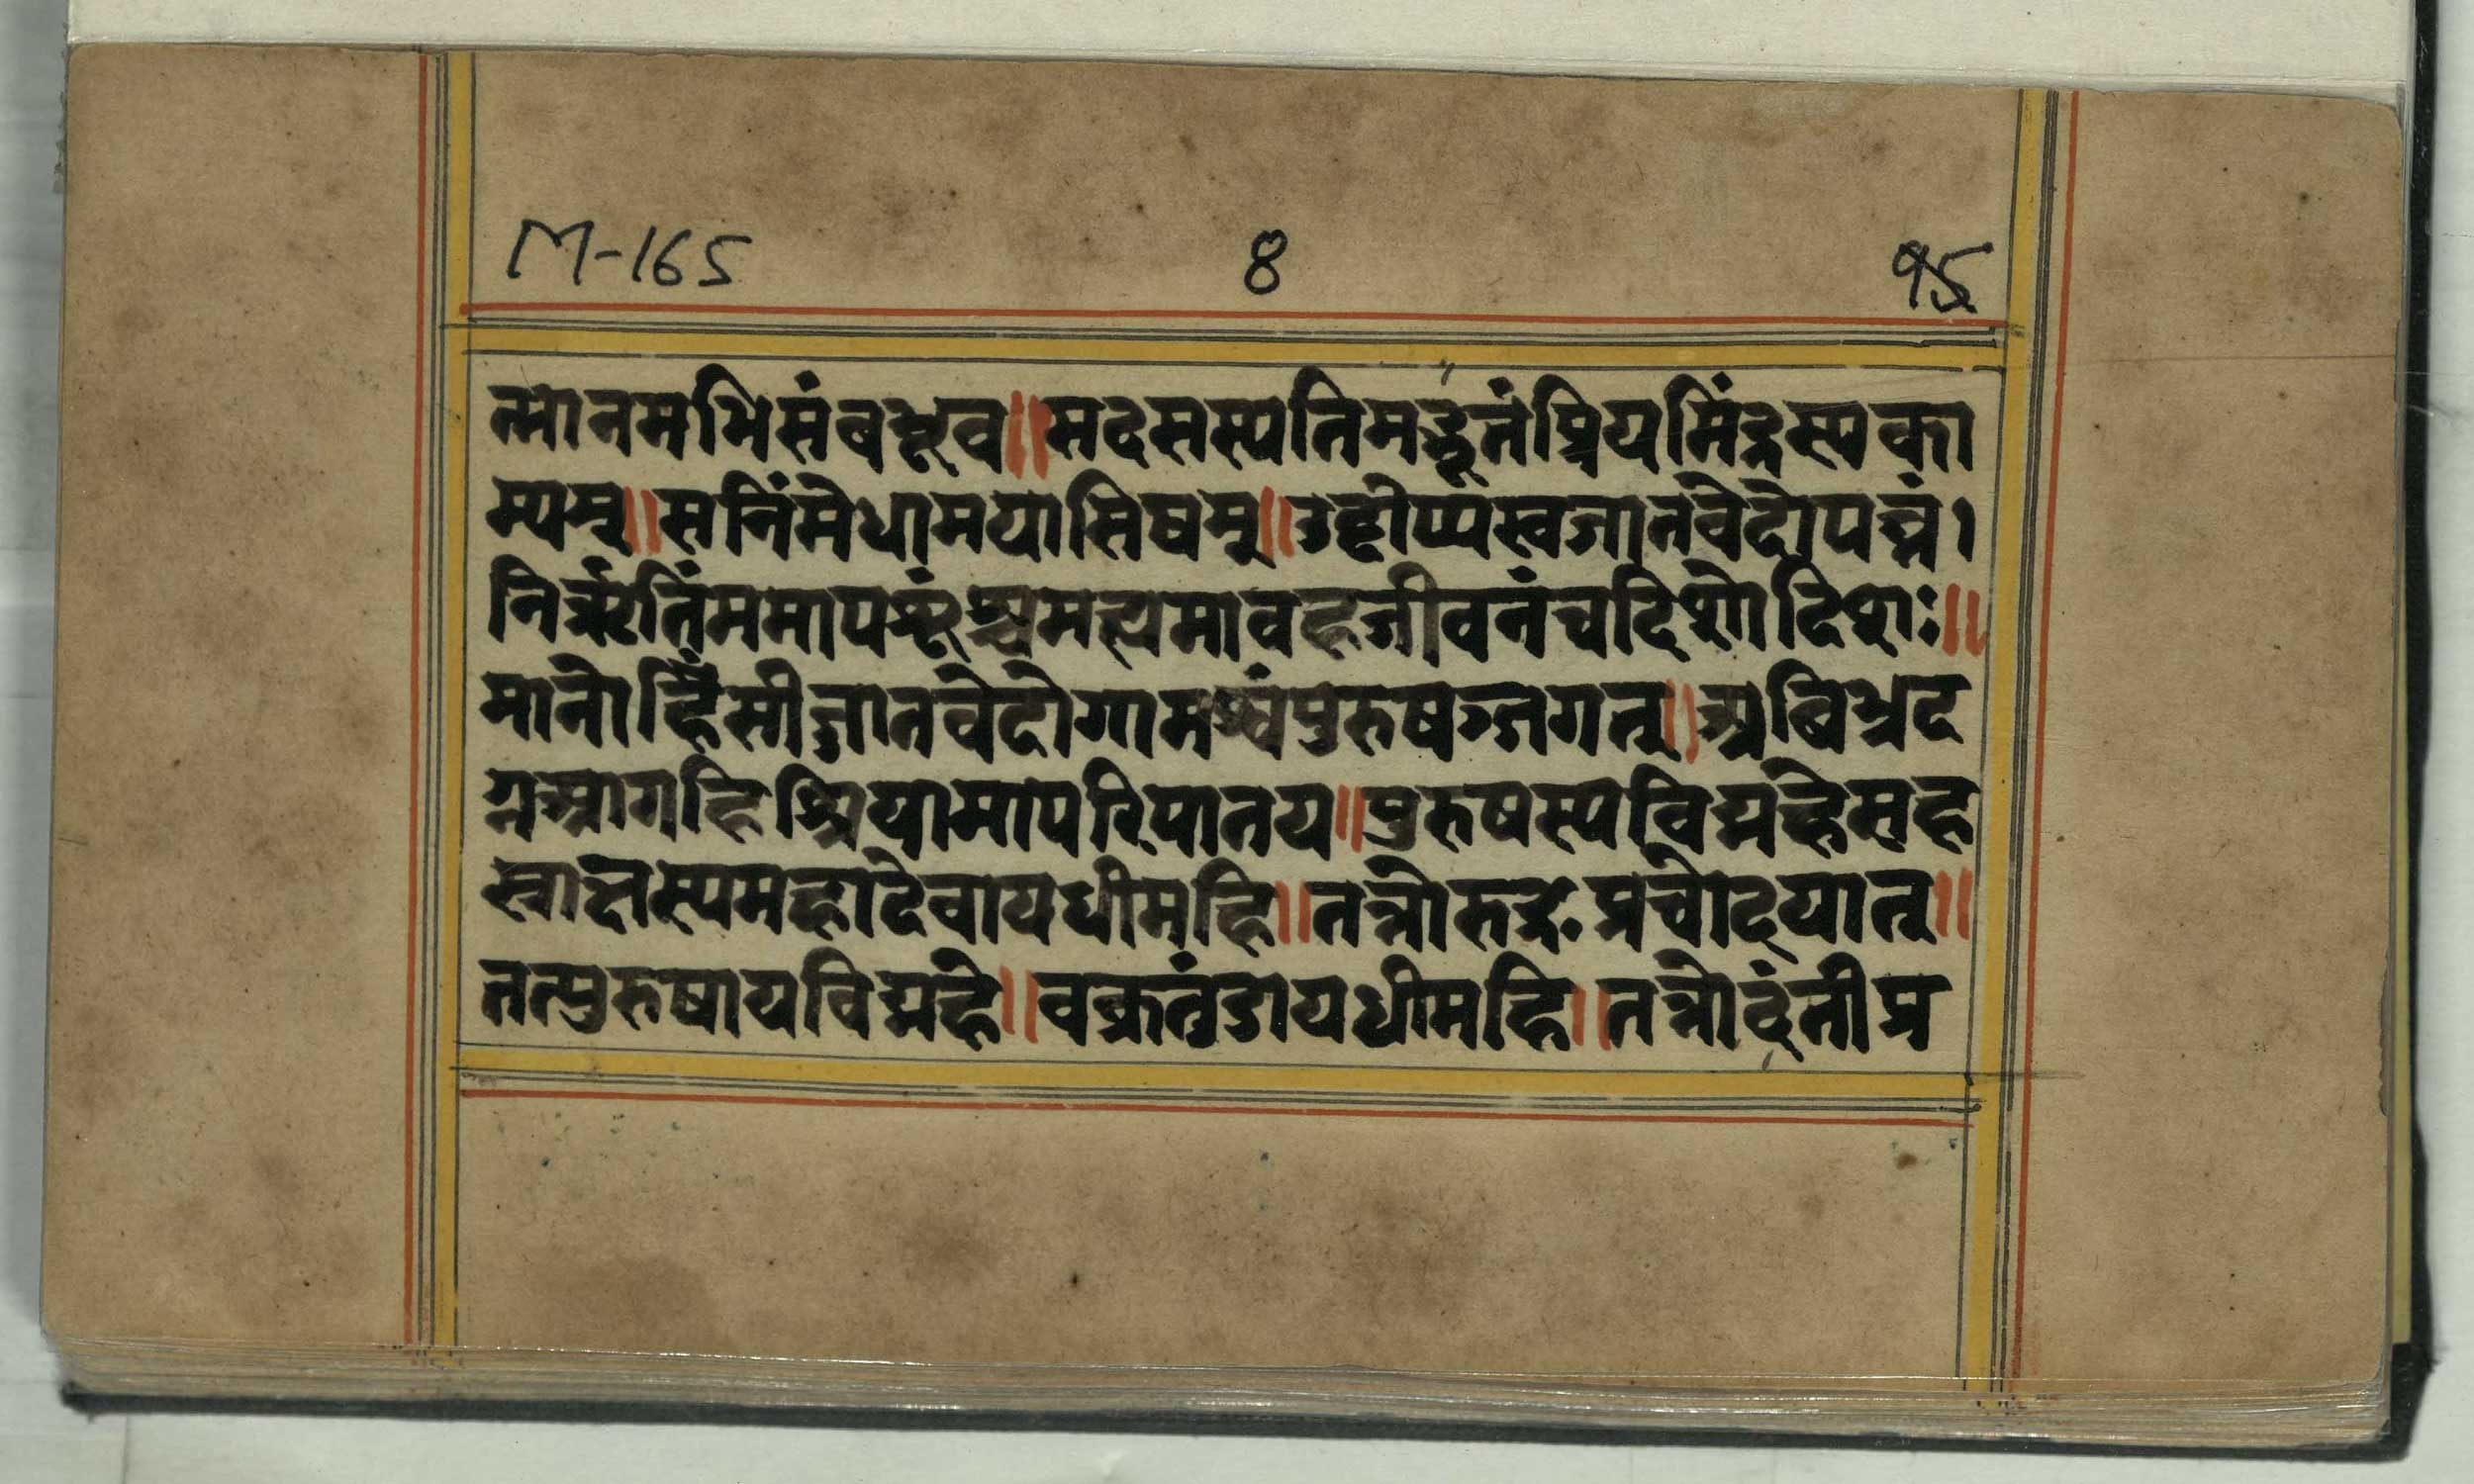 M-165 8 १५
त्मानमभिसंबभूव॥सदसस्पतिमद्भूतंप्रियमिंद्रस्यका
म्यम्॥सनिंमेधामयासिषम्॥उद्दीप्यस्वजातवेदोपघ्नं।
निर्ऋतिंममापशूंश्चमह्यमावहजीवनंचदिशोदिशः॥
मानोहिँसीज्जातवेदोगामश्वंपुरुषज्जगत्॥अबिभ्रद
ग्नआगहिश्रियामापरिपातय॥पुरुषस्यविद्महेसह
स्राक्षस्यमहादेवायधीमहि॥तन्नोरुद्रःप्रचोदयात्॥
तत्पुरुषायविद्महे॥वक्रतुंडायधीमहि॥तन्नोदंतीप्र